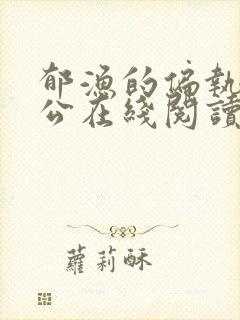 郁漁的偏執
公在綫閱讀
蘿莉酥